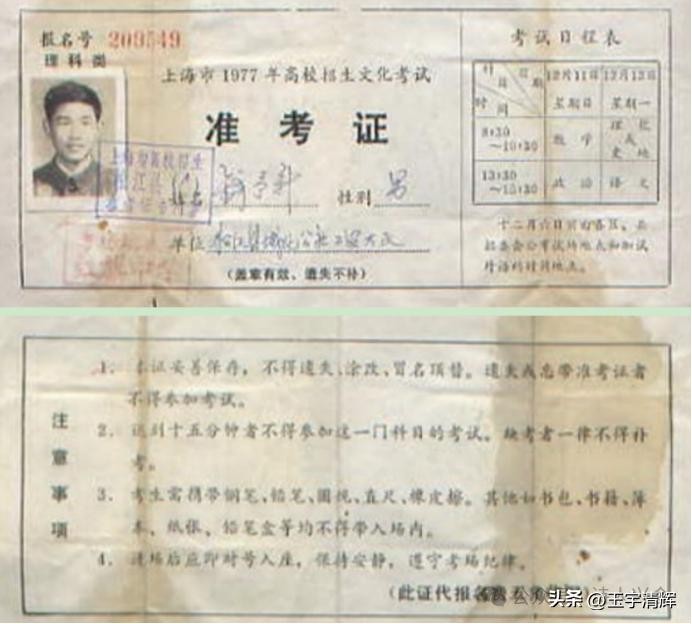 报名号 209549
理科类
上海市1977年高校招生文化考试
准考证
姓名 性别 男
单位
(盖章有效、遗失不补)
上海市高校招生
松江县
考试日程表
科目 日期 时间 12月11日 星期日 12月12日 星期一
8:30～10:30 数学 理化或史地
13:30～15:30 政治 语文
十二月六日前由各区、县
招委会公布试场地点和加试
外语的时间地点。
注意事项
1. 本证妥善保存，不得遗失、涂改、冒名顶替。遗失或忘带准考证者
不得参加考试。
2. 迟到十五分钟者不得参加这一门科目的考试。缺考者一律不得补
考。
3. 考生需携带钢笔、铅笔、圆规、直尺、橡皮擦。其他如书包、书籍、簿
本、纸张、铅笔盒等均不得带入场内。
4. 进场后应即对号入座，保持安静，遵守考场纪律。
(此证代报名费五角收据)
头条 @玉宇清辉